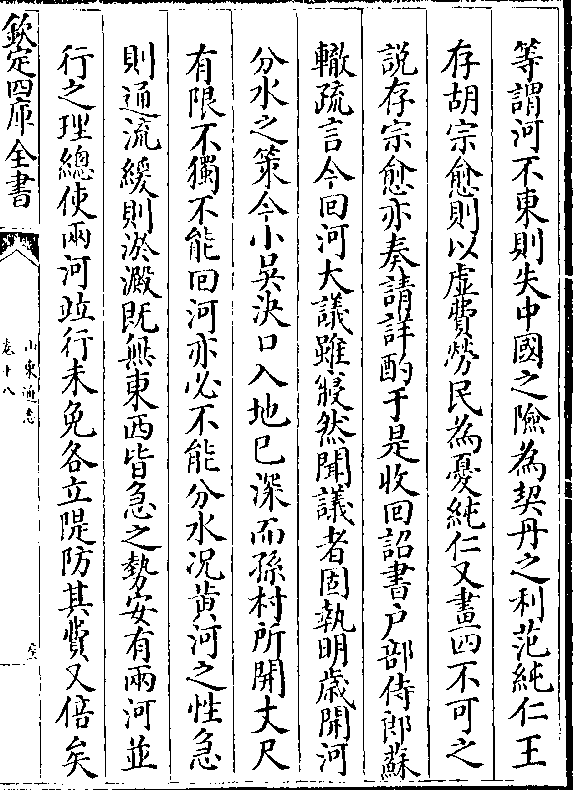 等謂河不東則失中國之險為契丹之利范純仁王
存胡宗愈則以虚費勞民為憂純仁又畫四不可之
説存宗愈亦奏請詳酌于是收回詔書户部侍郎蘇
轍疏言今回河大議雖寢然聞議者固執明歲開河
分水之策今小吳決口入地已深而孫村所開丈尺
有限不獨不能回河亦必不能分水況黄河之性急
則通流緩則淤澱既無東西皆急之勢安有兩河並
行之理總使兩河竝行未免各立隄防其費又倍矣
欽定四庫全書
山東通志
卷十八